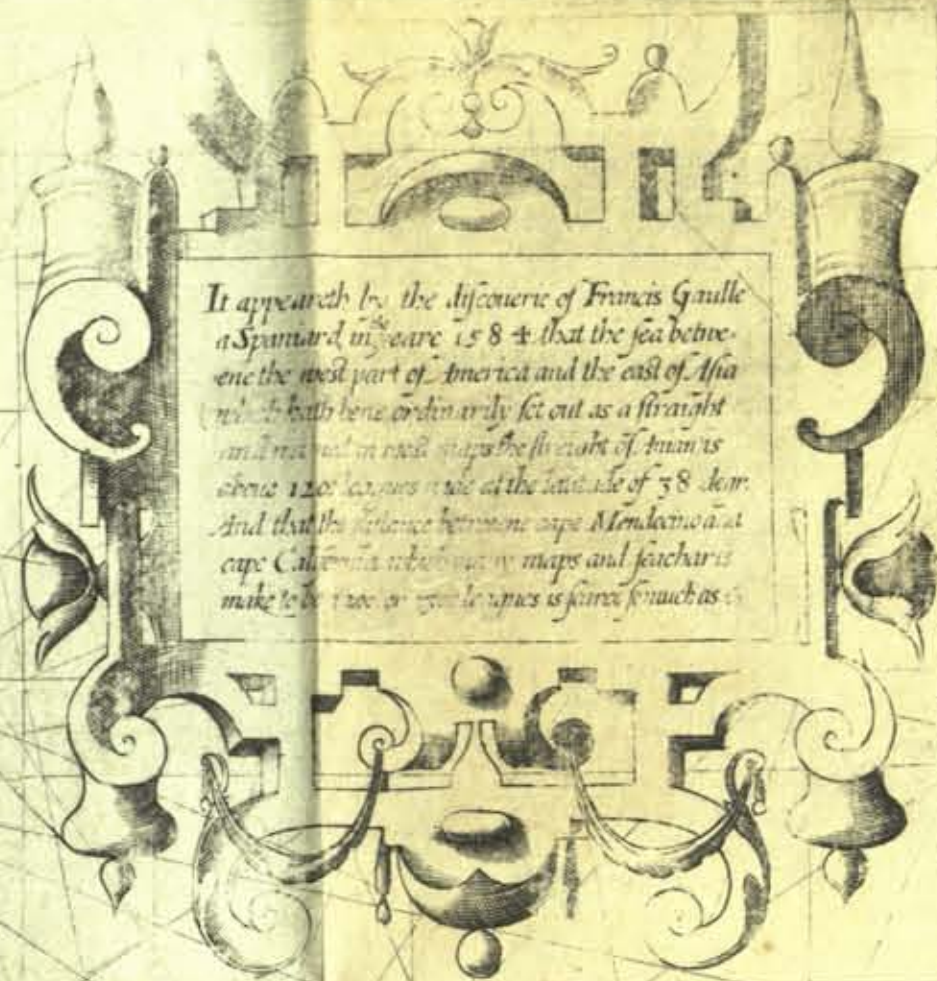 It appeareth by the discouerie of Francis Gaulle
a Spaniard in the yeare 1584 that the sea betwe-
ene the west part of America and the east of Asia
which hath bene ordinarily set out as a straight
and in most maps the streight of Anian is
aboue 1200 leagues wide at the latitude of 38 degr.
And that the distance betweene cape Mendocino and
cape California which many maps and seacharts
make to be 1200 or leagues is scarce so much as